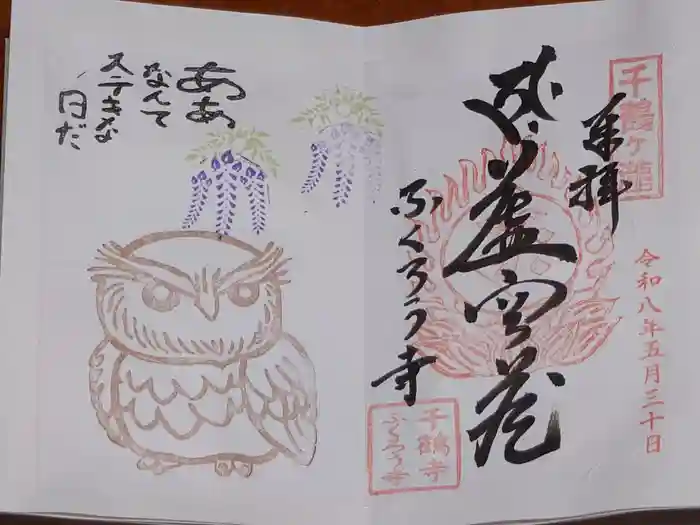 奉拝
令和八年五月三十日
虚空蔵
ふくろう寺
千鶴寺
ふくろう寺
ああ
なんて
ステキな
一日だ